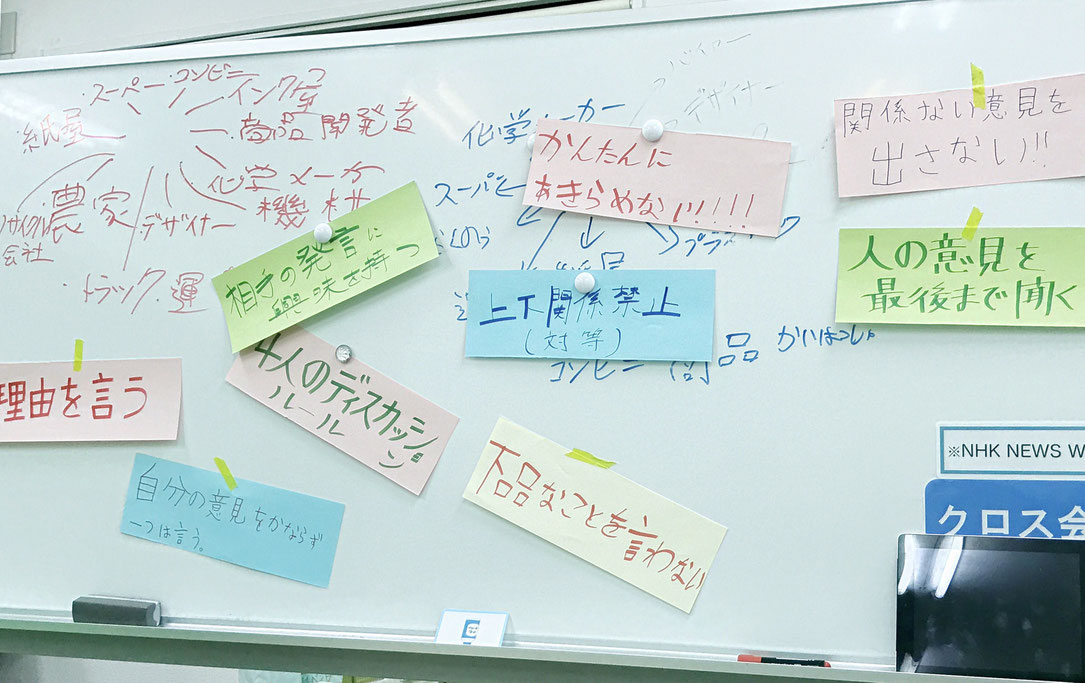 ・スーパー・コンビニ
インク屋
・紙屋
・商品開発者
・化学メーカー
農家
・デザイナー
機械
リサイクル
会社
・トラック・運
バイヤー
デザイナー
化学メーカー
スーパー
コンビニ
商品 かいはつしゃ
かんたんに
あきらめない!!!!
関係ない意見を
出さない!!
相手の発言に
興味を持つ
上下関係禁止
(対等)
人の意見を
最後まで聞く
理由を言う
4人のディスカッション
ルール
自分の意見をかならず
一つは言う。
下品なことを言わない
※NHK NEWS W
クロス会